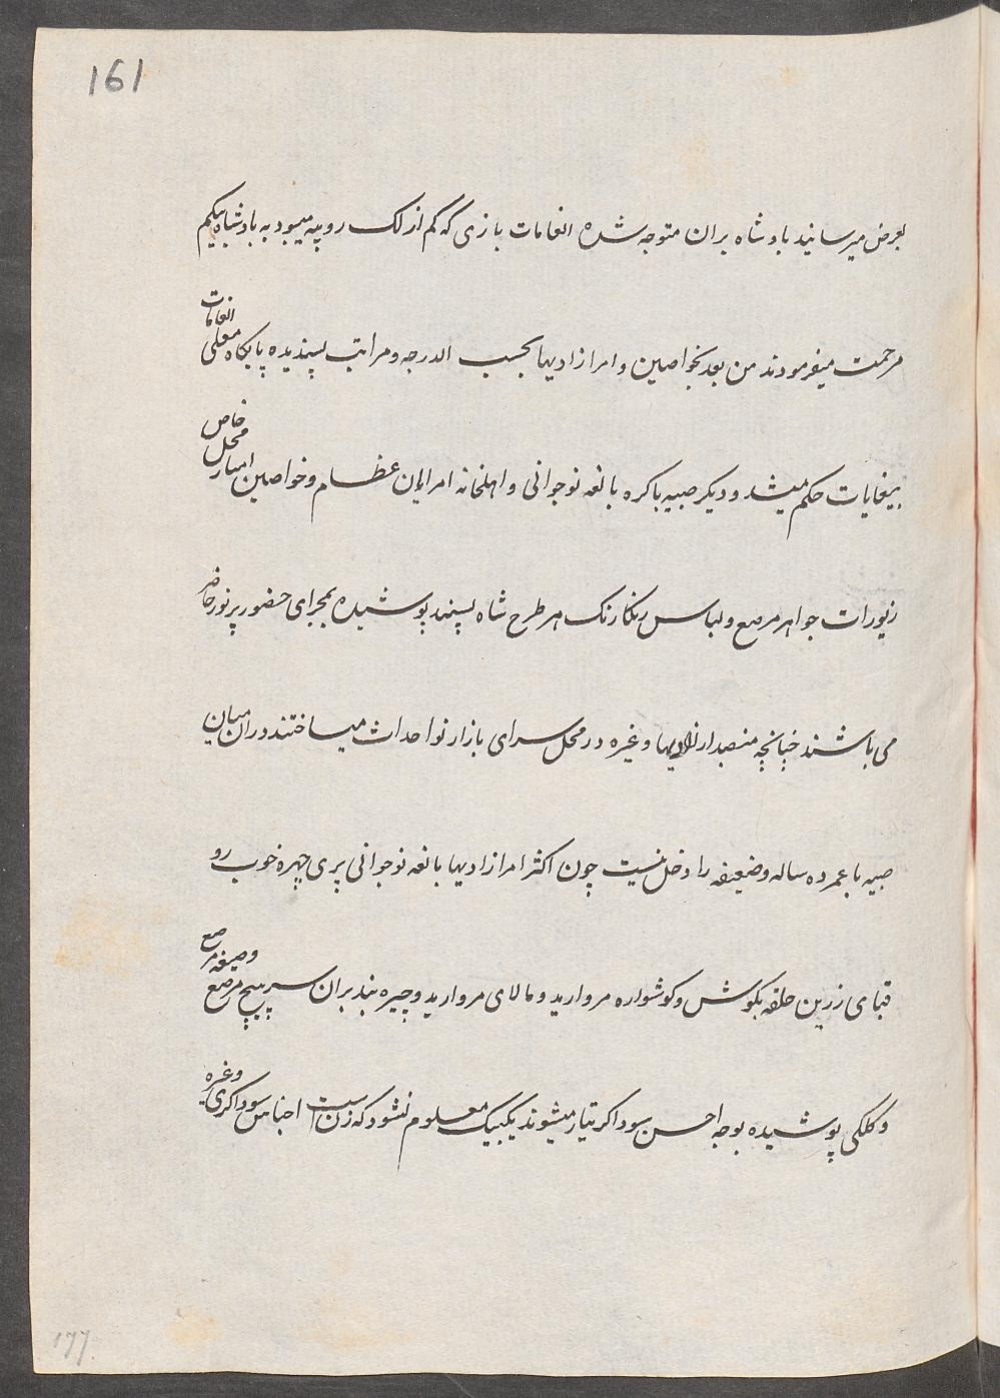 161
بعرض میرسانید بادشاه بران متوجه شده انعامات بازی که کم از لک روپیه میبود به بادشاه بیکم
مرحمت میفرمودند من بعد بخواصین و امرازادیها بحسب الدرجه و مراتب پسندیده پایکاه معلی انعامات
بیغایات حکم میشد و دیکر صبیه باکره بالغه نوجوانی و اهلخانه امرایان عظام و خواصین محل خاص
زیورات جواهر مرصع و لباس رنکارنک هر طرح شاه پسند پوشیده بمجرای حضور پرنور حاضر
می باشند چنانچه منصبدارنلادیها وغیره در محل سرای بازار نو احداث میساختند دران میان
صبیه با عمر ده ساله و ضعیفه را دخل نیست چون اکثر امرازادیها بالغه نوجوانی پری چهره خوب رو
قبای زرین حلقه بکوش و کوشواره مروارید و مالای مروارید و چیره بند بران سرپیچ مرصع مرصع
و کلکی پوشیده بوجه احسن سوداکر تیار میشوند یکبیک معلوم نشود که زن است اجناس سوداکری وغیره
177